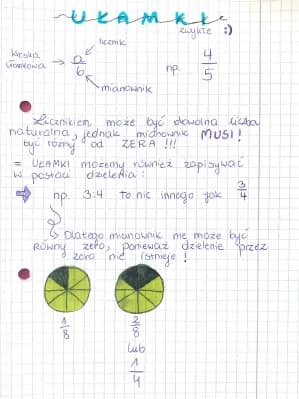 UŁAMKI
zwykłe :)
licznik
kreska ułamkowa → a/b
mianownik
np. 4/5
Licznikiem może być dowolna liczba
naturalna, jednak mianownik MUSI!
być różny od ZERA !!!
= UŁAMKI możemy również zapisywać
w postaci dzielenia:
np. 3:4 to nic innego jak 3/4
Dlatego mianownik nie może być
równy zero, ponieważ dzielenie przez
zero nie istnieje!
1/8
2/8
lub
1/4